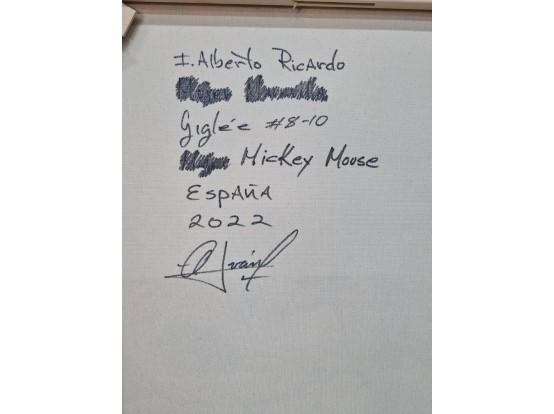 I. Alberto Ricardo
Gigleé #8-10
Mickey Mouse
ESPAÑA
2022